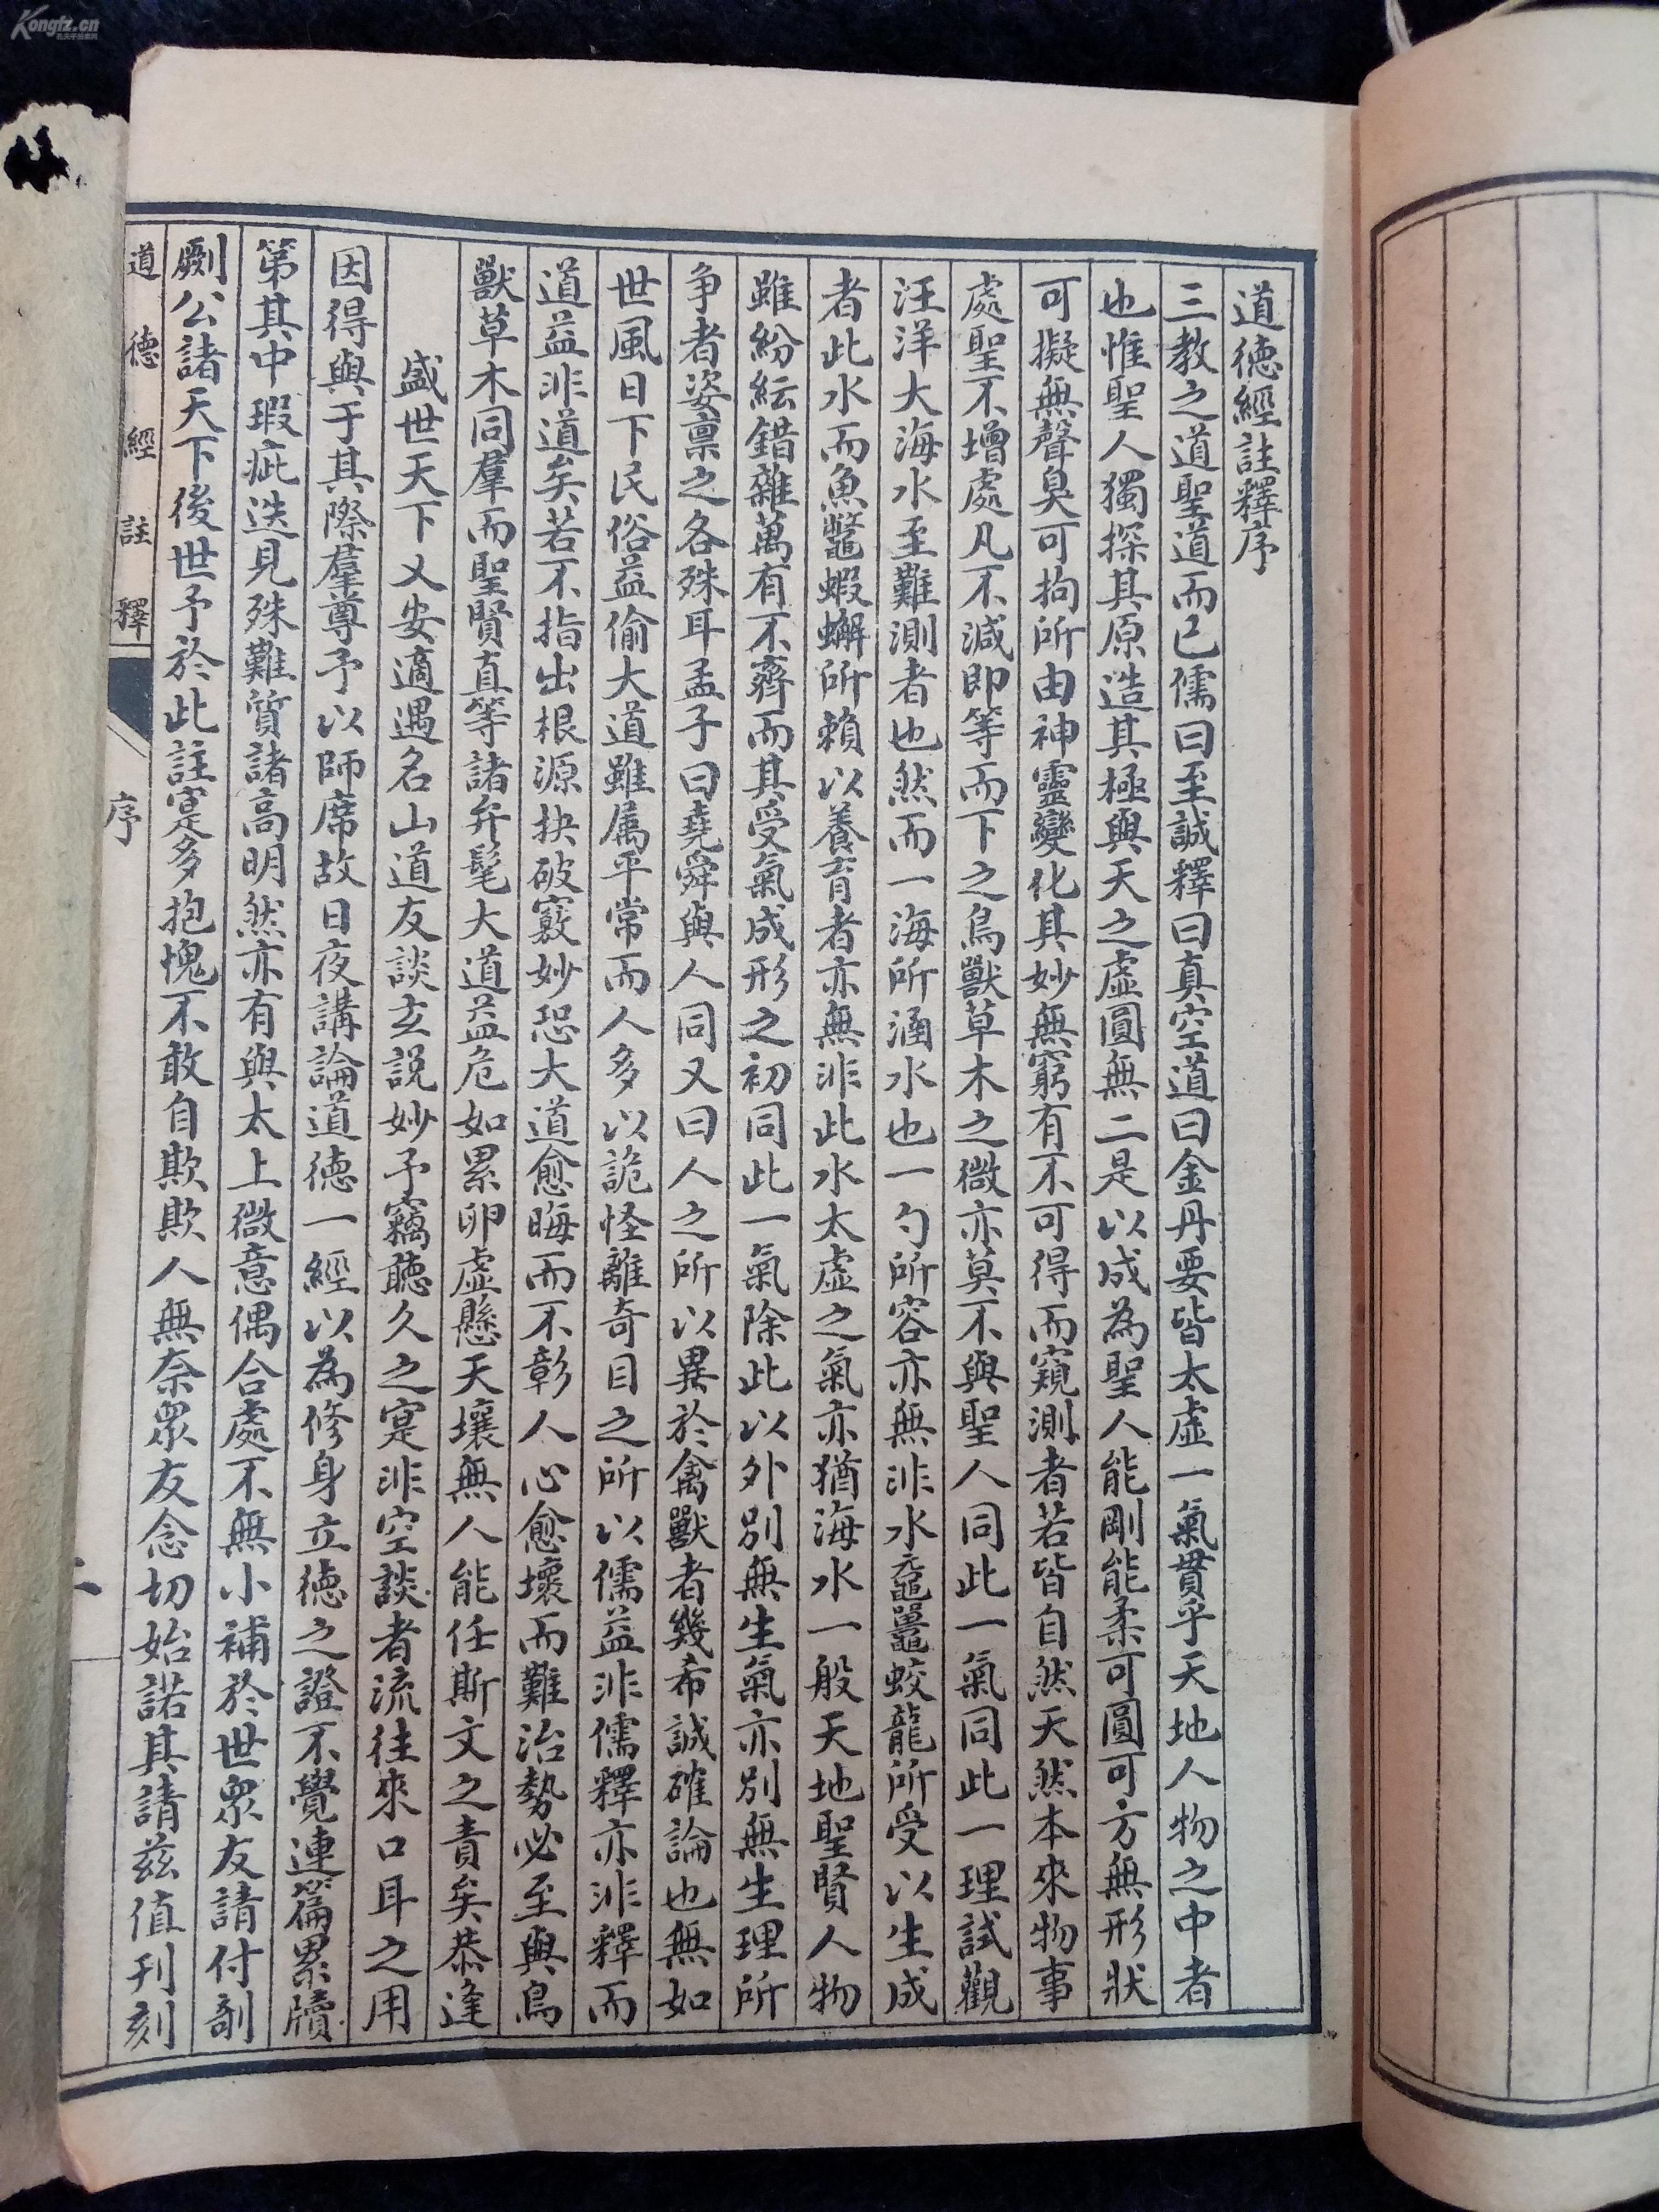 道德經註釋序
三教之道聖道而已儒曰至誠釋曰真空道曰金丹要皆太虛一氣貫乎天地人物之中者
也惟聖人獨探其原造其極與天之虛圓無二是以成為聖人能剛能柔可圓可方無形狀
可擬無聲臭可拘所由神靈變化其妙無窮有不可得而窺測者若皆自然天然本來物事
處聖不增處凡不減即等而下之鳥獸草木之微亦莫不與聖人同此一氣同此一理試觀
汪洋大海水至難測者也然而一海所涵水也一勺所容亦無非水黿鼉蛟龍所受以生成
者此水而魚鼈蝦蠏所賴以養育者亦無非此水太虛之氣亦猶海水一般天地聖賢人物
雖紛紜錯雜萬有不齊而其受氣成形之初同此一氣除此以外別無生氣亦別無生理所
爭者姿禀之各殊耳孟子曰堯舜與人同又曰人之所以異於禽獸者幾希誠確論也無如
世風日下民俗益偷大道雖属平常而人多以詭怪離奇目之所以儒益非儒釋亦非釋而
道益非道矣若不指出根源抉破竅妙恐大道愈晦而不彰人心愈壞而難治勢必至與鳥
獸草木同羣而聖賢直等諸弁髦大道益危如累卵虛懸天壤無人能任斯文之責矣恭逢
盛世天下乂安適遇名山道友談玄說妙予竊聽久之寔非空談者流往來口耳之用
因得與于其際羣尊予以師席故日夜講論道德一經以為修身立德之證不覺連篇累牘
第其中瑕疵迭見殊難質諸高明然亦有與太上微意偶合處不無小補於世眾友請付剞
劂公諸天下後世予於此註寔多抱愧不敢自欺欺人無奈眾友念切始諾其請茲值刊刻
道德經註釋
序
Kongfz.cn